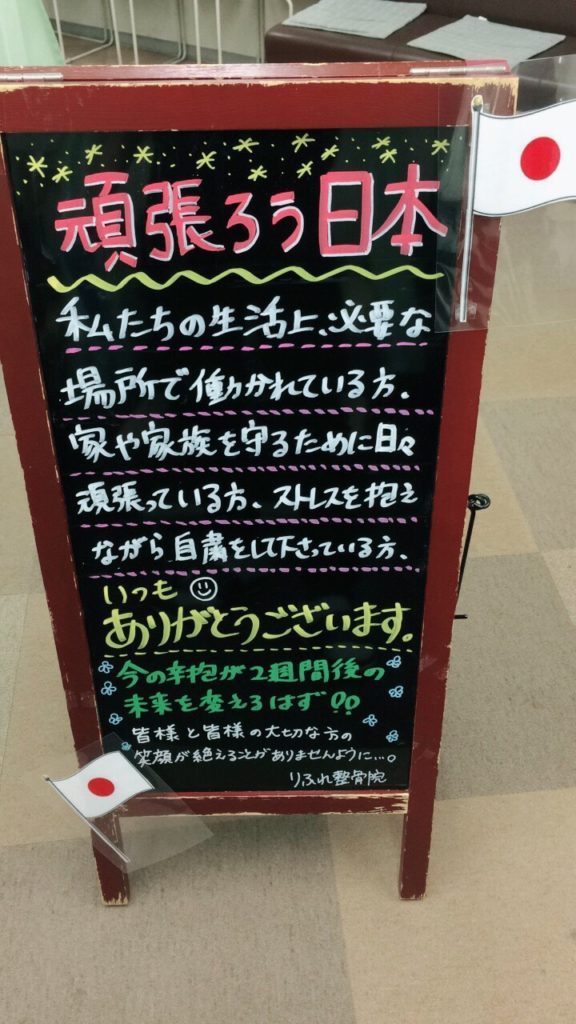 頑張ろう日本
私たちの生活上、必要な
場所で働かれている方、
家や家族を守るために日々
頑張っている方、ストレスを抱え
ながら自粛をして下さっている方、
いつも
ありがとうございます。
今の辛抱が2週間後の
未来を変えるはず!!
皆様と皆様の大切な方の
笑顔が絶えることがありませんように…。
りふれ整骨院